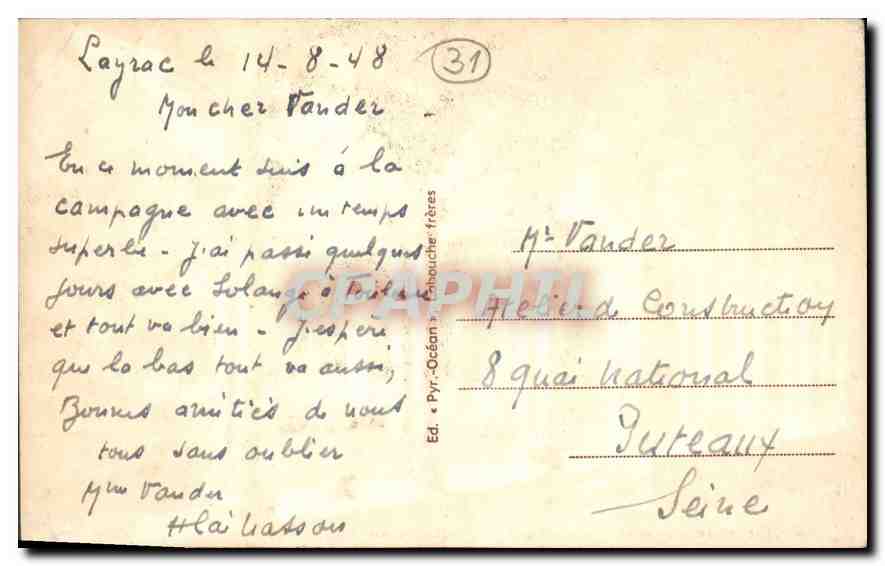 Layrac le 14-8-48
31
Mon cher Vander
En ce moment suis à la
campagne avec un temps
superbe - J'ai passé quelques
jours avec Solange à
et tout va bien - J'espère
que la bas tout va aussi,
Bonnes amitiés de nous
tous sans oublier
Mme Vander
Ed. « Pyr.-Océan » frères
CPAPHIL
Mr Vander
Atelier de Construction
8 quai National
Puteaux
Seine